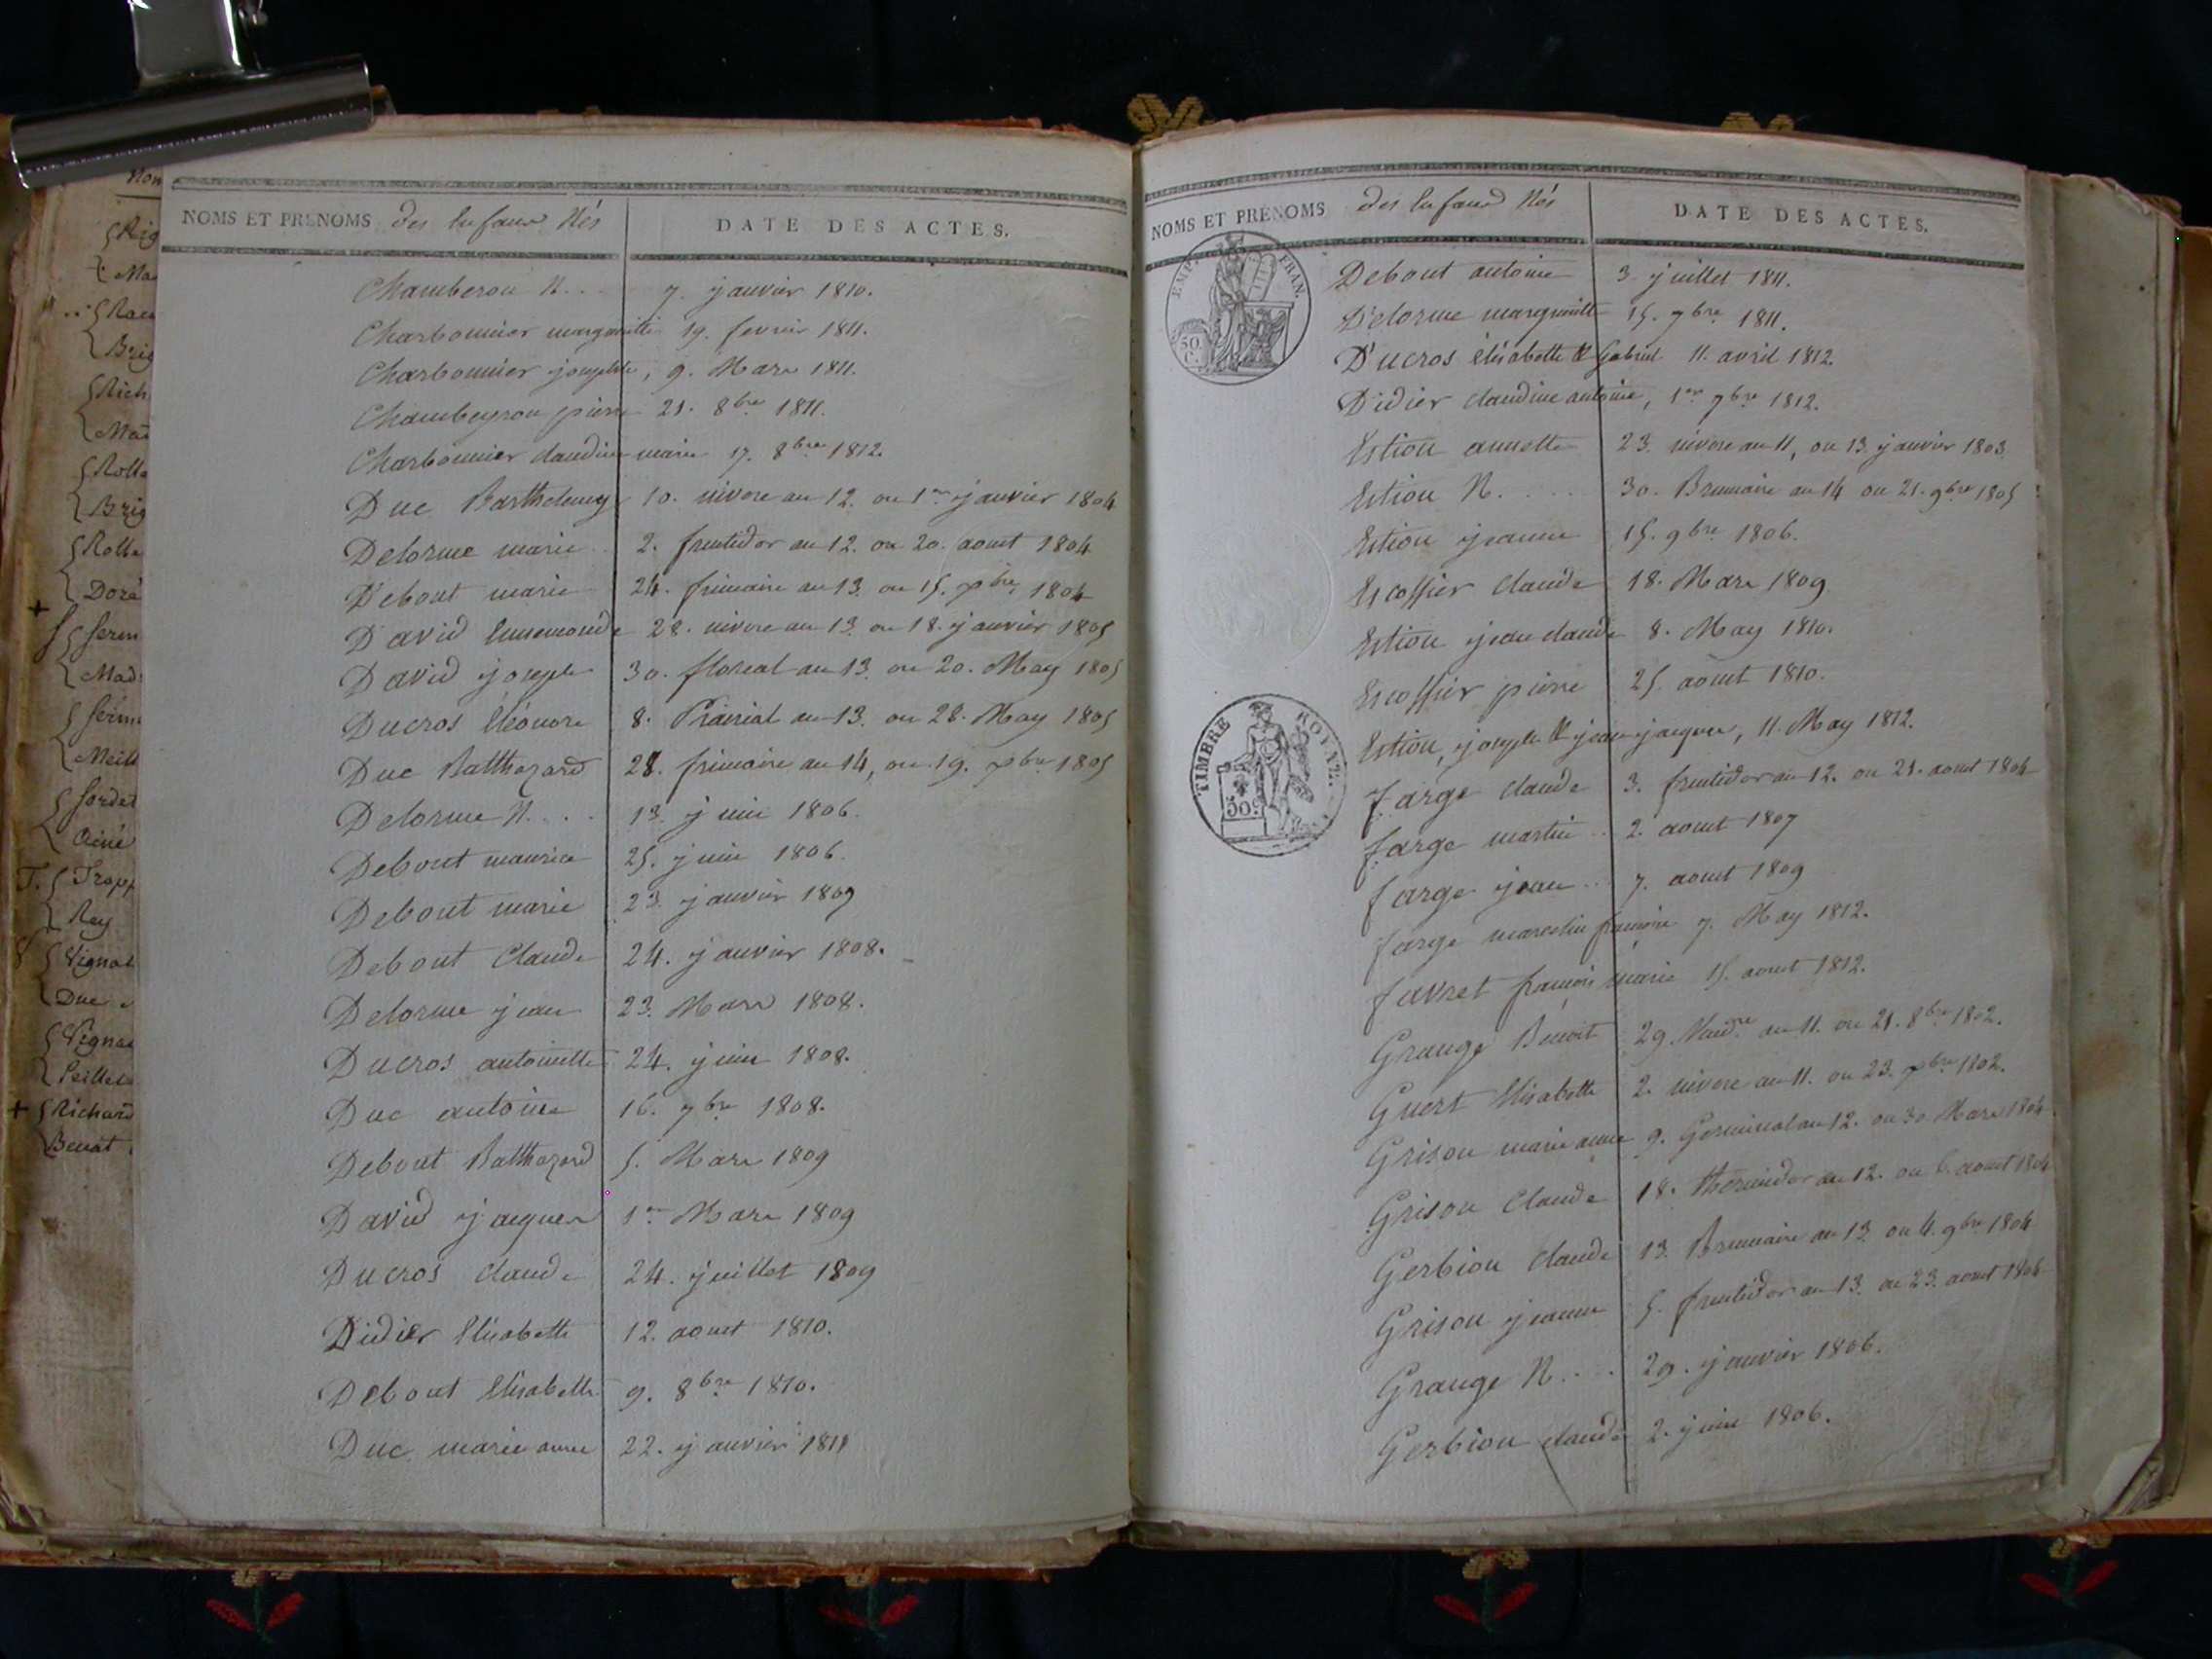 Nom
{Rig
{Ma
{Rac
{Brig
{Rich
{Mad
{Rolle
{Brig
{Rolle
{Doré
{serm
{Mad
{serm
{Meill
{sordet
Aimé
T. {Trop
{Rey
V {Vignal
{Duc
{Vignal
{Peillet
+ {Richard
{Benat
NOMS ET PRENOMS des Enfans Nés DATE DES ACTES.
Chamberou N... 7. janvier 1810.
Charbonnier margueritte 19. fevrier 1811.
Charbonnier josephte, 9. Mars 1811.
Chambeyrou pierre 21. 8bre 1811.
Charbonnier claudine marie 17. 8bre 1812.
Duc Barthelemy 10. nivose an 12. ou 1er janvier 1804
Delorme marie.. 2. fructidor an 12. ou 20. aoust 1804
Debout marie 24. frimaire an 13. ou 15. xbre 1804
David Ennemonde 28. nivose an 13. ou 18. janvier 1805
David joseph 30. floreal an 13. ou 20. May 1805
Ducros Eléonore 8. Prairial an 13. ou 28. May 1805
Duc Balthazard 28. frimaire an 14, ou 19. xbre 1805
Delorme N.... 13. juin 1806.
Debout maurice 25. juin 1806.
Debout marie 23. janvier 1809
Debout Claude 24. janvier 1808.
Delorme jean 23. Mars 1808.
Ducros antoinette 24. juin 1808.
Duc antoine 16. 7bre 1808.
Debout Balthazard 5. Mars 1809
David jacques 1er Mars 1809
Ducros claude 24. juillet 1809
Didier Elisabeth 12. aoust 1810.
Debout Elisabeth 9. 8bre 1810.
Duc marie anne 22. janvier 1811
NOMS ET PRENOMS des Enfans Nés DATE DES ACTES.
EMP. FRAN.
50. C.
Debout antoine 3. juillet 1811.
Delorme margueritte 15. 7bre 1811.
Ducros Elisabeth & Gabriel 11. avril 1812.
Didier claudine antoine, 1er 7bre 1812.
Estiou annette 23. nivose an 11, ou 13. janvier 1803.
Estiou N..... 30. Brumaire an 14 ou 21. 9bre 1805
Estiou jeanne 15. 9bre 1806.
Escoffier claude 18. Mars 1809
Estiou jean claude 8. May 1810.
Escoffier pierre 25. aoust 1810.
Estiou, joseph & jean jacques, 11. May 1812.
TIMBRE ROYAL.
50c
farge claude 3. fructidor an 12. ou 21. aoust 1804
farge martin .. 2. aoust 1807
farge jean ... 7. aoust 1809
farge marcelin françois 7. May 1812.
favret françois marie 15. aoust 1812.
Grange Benoit 29. Vendre an 11. ou 21. 8bre 1802.
Guert Elisabeth 2. nivose an 11. ou 23. xbre 1802.
Grisou marie anne 9. Germinal an 12. ou 30. Mars 1804
Grisou Claude 18. thermidor an 12. ou 6. aoust 1804
Gerbiou claude 13. Brumaire an 13. ou 4. 9bre 1804
Grisou jeanne 5. fructidor an 13. ou 23. aoust 1806
Grange N.... 29. janvier 1806.
Gerbiou claude 2. juin 1806.